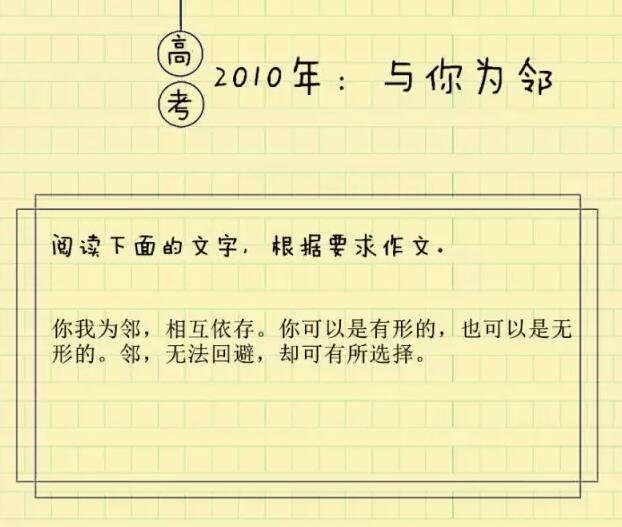 高考
2010年：与你为邻
阅读下面的文字，根据要求作文.
你我为邻，相互依存。你可以是有形的，也可以是无
形的。邻，无法回避，却可有所选择。